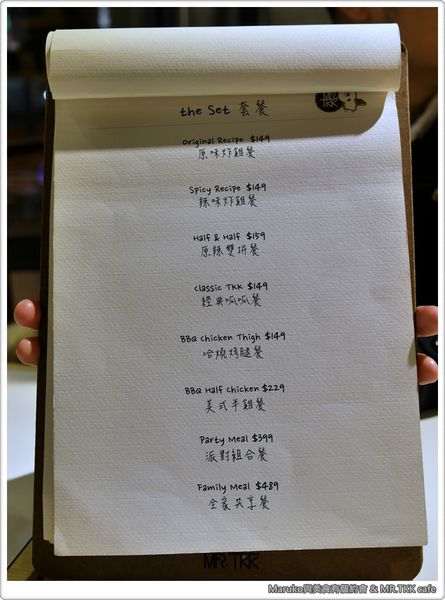 MR.
TKK
the Set 套餐
Original Recipe $149
原味炸雞餐
Spicy Recipe $149
辣味炸雞餐
Half & Half $159
原辣雙拼餐
Classic TKK $149
經典呱呱餐
BBQ Chicken Thigh $149
哈燒烤腿餐
BBQ Half Chicken $229
美式半雞餐
Party Meal $399
派對組合餐
Family Meal $489
全家共享餐
MR.TKK
Maruko與美食有個約會 & MR.TKK cafe